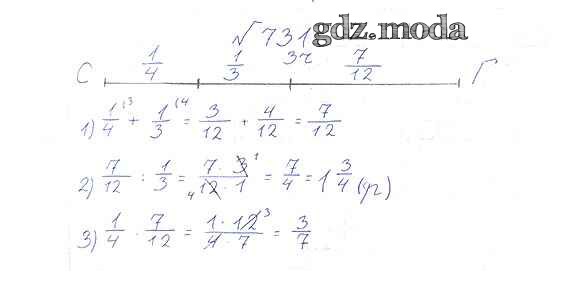 √731
gdz.moda
1/4 1/3 3г 7/12
С Г
1) 1/4 (3 + 1/3 (4 = 3/12 + 4/12 = 7/12
2) 7/12 : 1/3 = 7 · 3 1/4 12 · 1 = 7/4 = 1 3/4 (дг)
3) 1/4 · 7/12 = 1 · 12 3/4 · 7 = 3/7